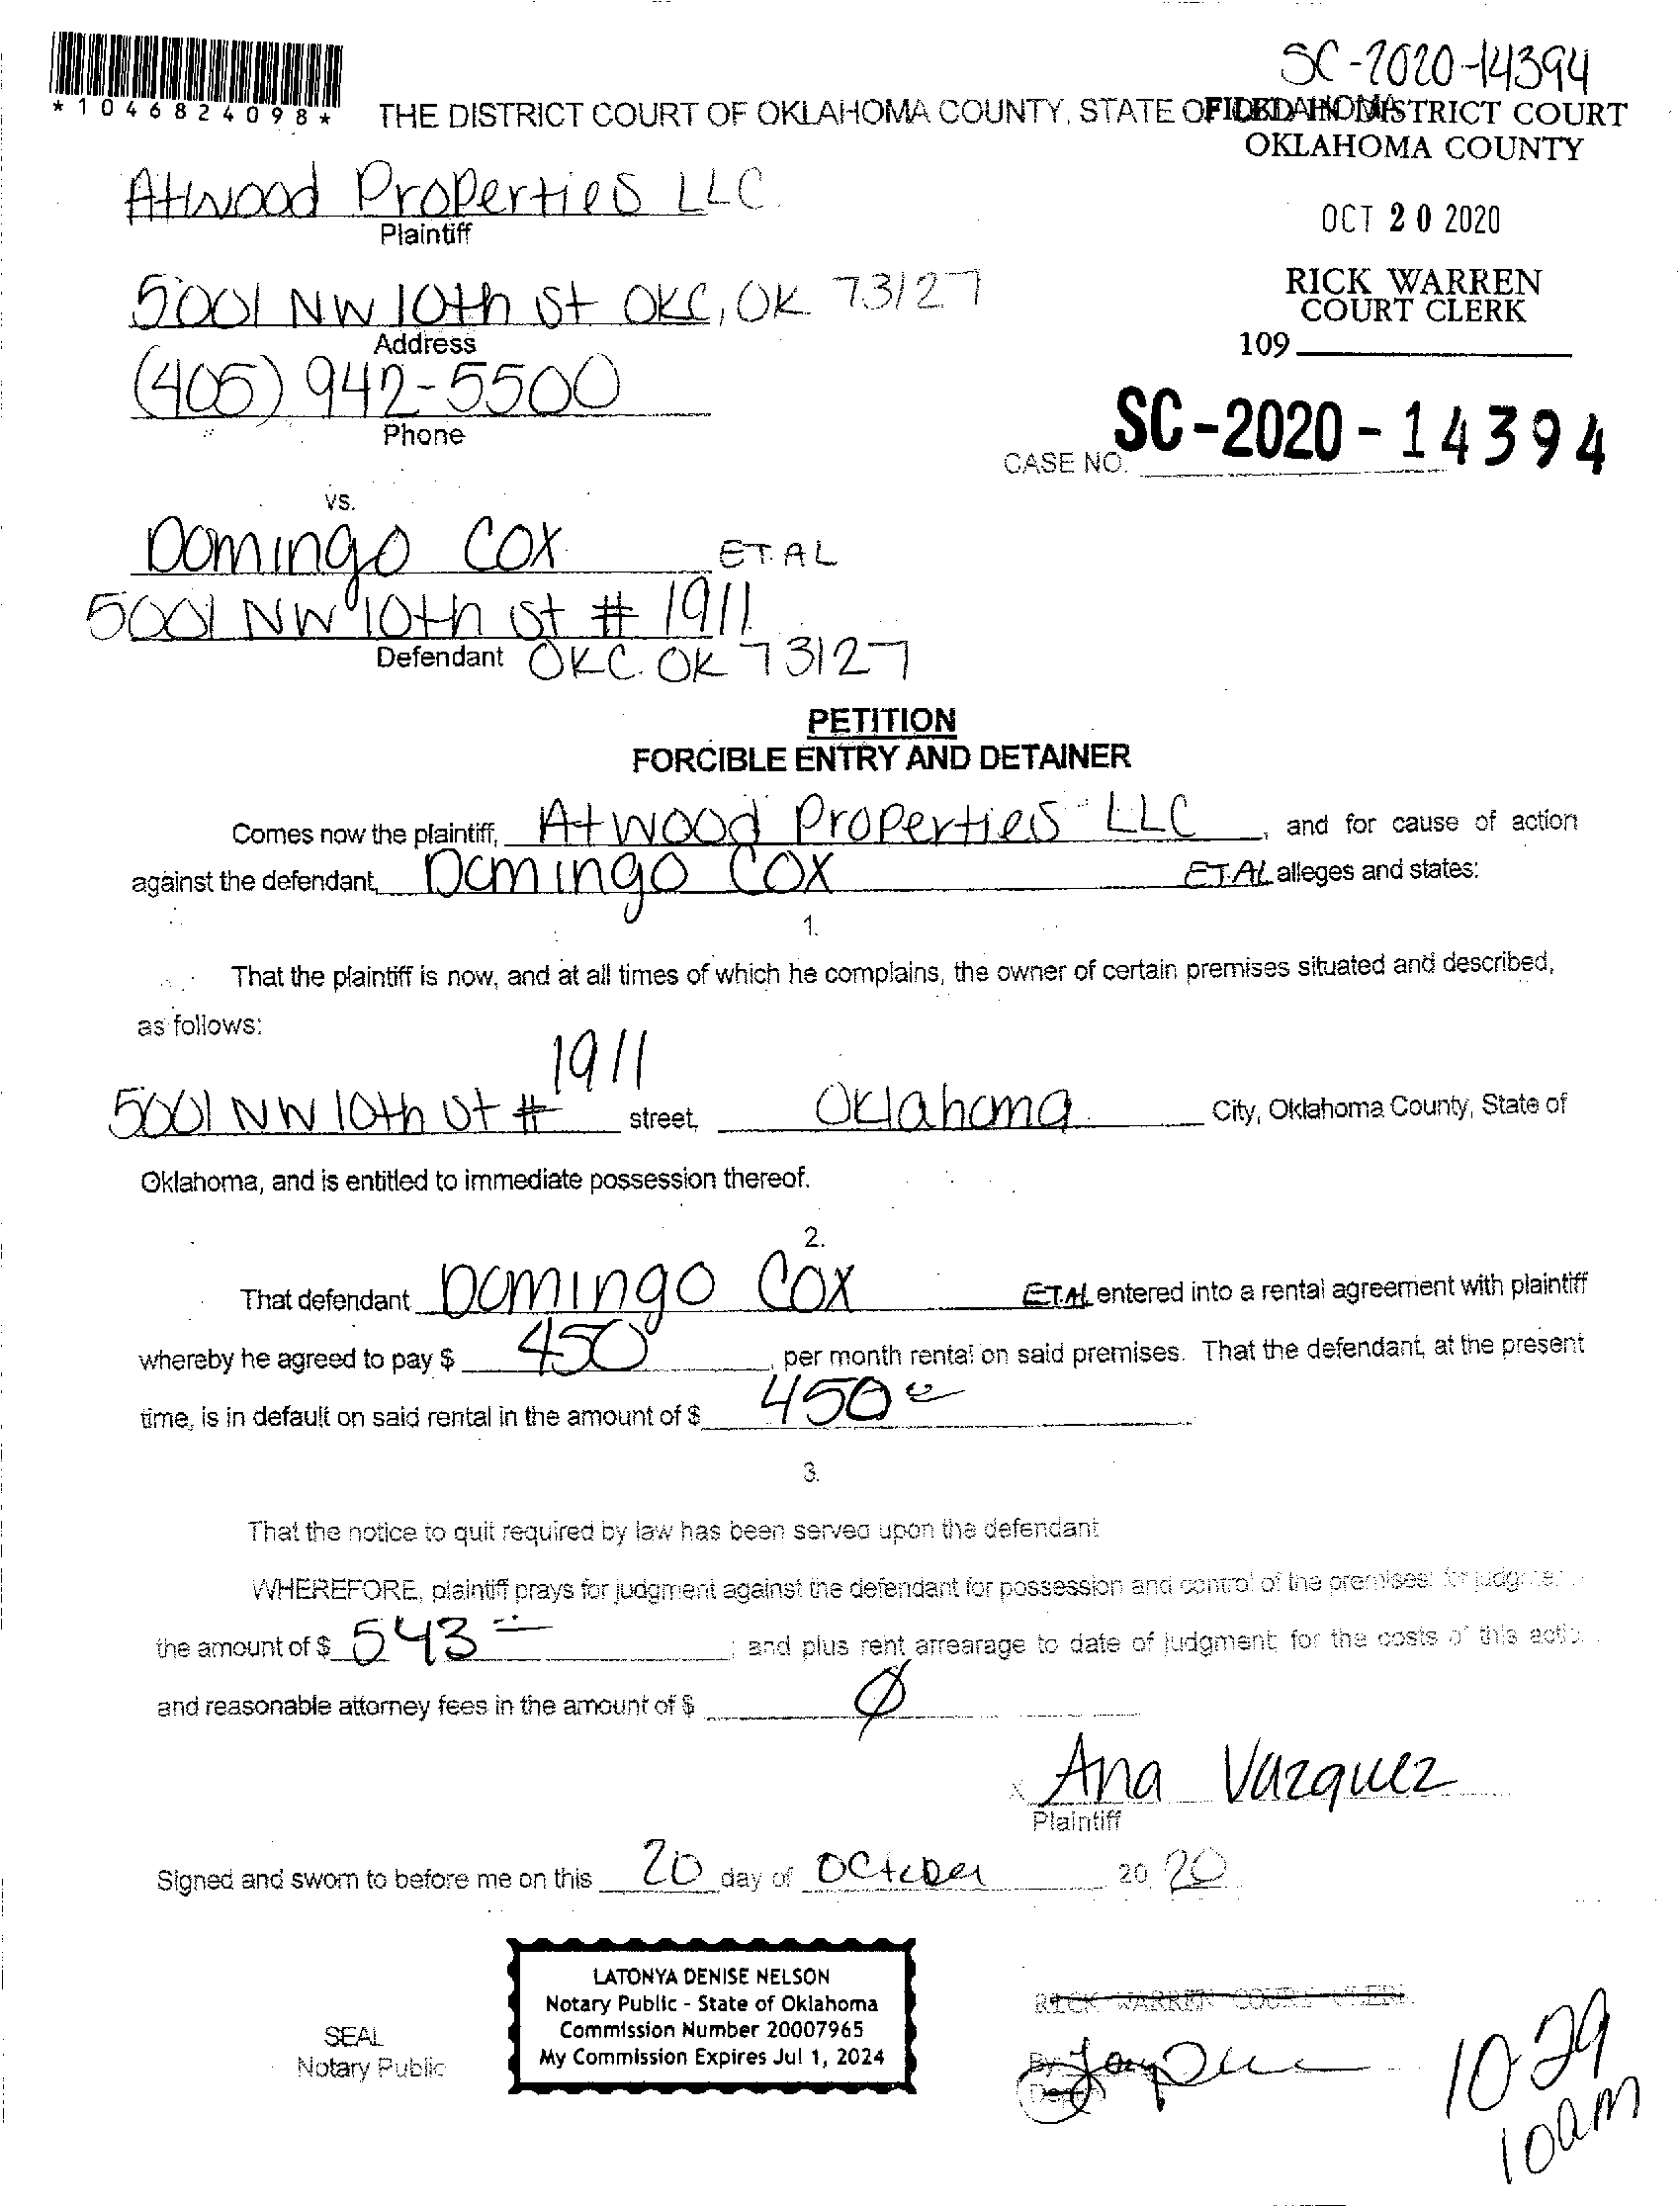 SC-2020-14394
*1046824098*
THE DISTRICT COURT OF OKLAHOMA COUNTY, STATE OF OKLAHOMA
FILED IN DISTRICT COURT
OKLAHOMA COUNTY
Atwood Properties LLC.
Plaintiff
OCT 20 2020
5001 NW 10th St OKC, OK 73127
Address
RICK WARREN
COURT CLERK
109
(405) 942-5500
Phone
CASE NO. SC-2020-14394
vs.
Domingo Cox ET.AL
5001 NW 10th St # 1911
Defendant OKC. OK 73127
PETITION
FORCIBLE ENTRY AND DETAINER
Comes now the plaintiff, Atwood Properties LLC, and for cause of action
against the defendant, Domingo Cox ET.AL alleges and states:
1.
That the plaintiff is now, and at all times of which he complains, the owner of certain premises situated and described,
as follows:
5001 NW 10th St # 1911 street, Oklahoma City, Oklahoma County, State of
Oklahoma, and is entitled to immediate possession thereof.
2.
That defendant Domingo Cox ET.AL entered into a rental agreement with plaintiff
whereby he agreed to pay $ 450, per month rental on said premises. That the defendant, at the present
time, is in default on said rental in the amount of $ 450
3.
That the notice to quit required by law has been served upon the defendant
WHEREFORE, plaintiff prays for judgment against the defendant for possession and control of the premises: for
the amount of $ 543; and plus rent arrearage to date of judgment; for the costs of this
and reasonable attorney fees in the amount of $ Ø
x Ana Vazquez
Plaintiff
Signed and sworn to before me on this 20 day of October 20 20
LATONYA DENISE NELSON
Notary Public - State of Oklahoma
Commission Number 20007965
My Commission Expires Jul 1, 2024
SEAL
Notary Public
RICK WARREN COURT CLERK
By
10-29
10am